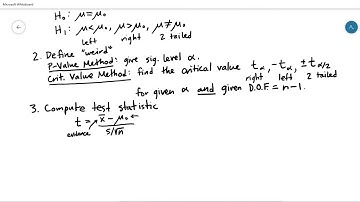 Microsoft Whiteboard
H₀: μ = μ₀
H₁: μ < μ₀, μ > μ₀, μ ≠ μ₀
left right 2 tailed
2. Define "weird"
P-Value Method: give sig. level α.
Crit. Value Method: find the critical value t_α, -t_α, ± t_α/2
right left 2 tailed
for given α and given D.O.F. = n-1.
3. Compute test statistic
t = x̄ - μ₀ ←
evidence s/√n